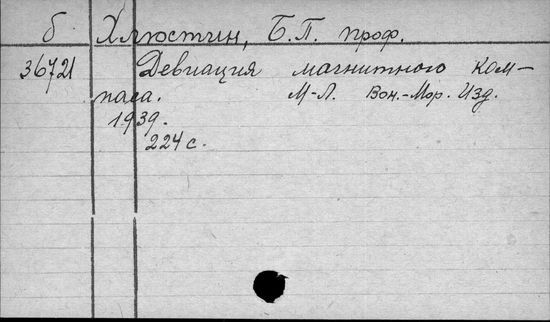 б. Хлюстин, Б.П. проф.
36721 Девиация магнитного ком-
паса. М-Л. Вон.-Мор. Изд.
1939.
224 с.